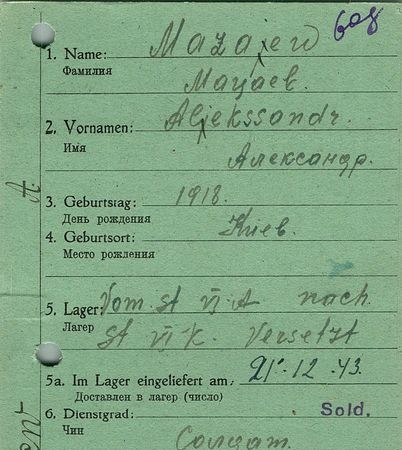 боя
1. Name: Mazaew
Фамилия
Мацаев.
2. Vornamen: Aljekssandr.
Имя
Александр.
3. Geburtstag: 1918.
День рождения
4. Geburtsort: Киев.
Место рождения
5. Lager: Vom St VI A nach
Лагер St VI K. Versetzt
5a. Im Lager eingeliefert am: 21. 12. 43.
Доставлен в лагер (число)
6. Dienstgrad: Sold.
Чин
Солдат.